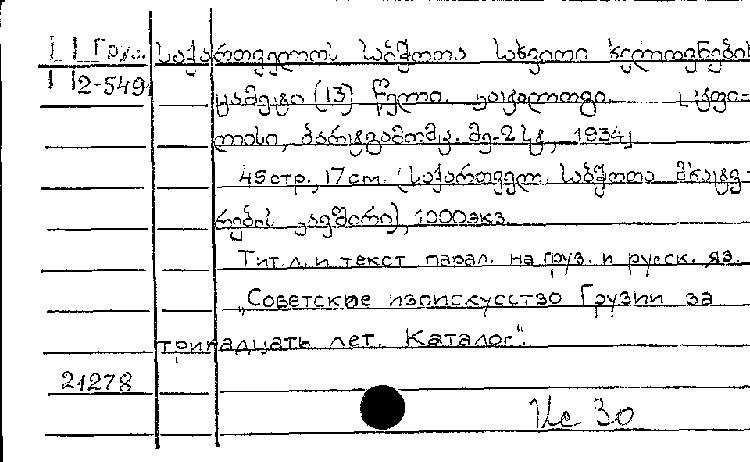 Груз. საქართველოს საბჭოთა სახვითი ხელოვნების
2-549
ცამეტი (13) წელი. კატალოგი. [ტფი-
ლისი, პარტგამომც. მე-2 სტ., 1934]
45 стр., 17 cm. (საქართველ. საბჭოთა მხატვ-
რების კავშირი), 1000 экз.
Тит. л. и текст парал. на груз. и русск. яз.
„Советское изоискусство Грузии за
тринадцать лет. Каталог".
21278
Ис 30